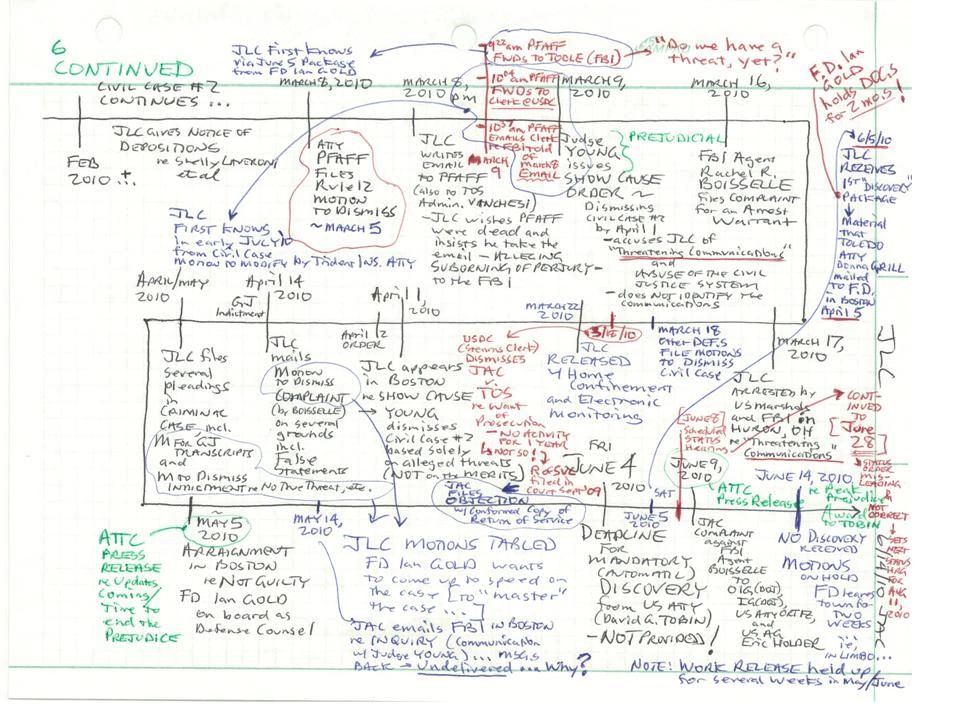 6
CONTINUED
CIVIL CASE #2
CONTINUES ...
JLC First Knows
via June 5 Package
from FD Ian GOLD
9:22 am PFAFF
FWDS TO TOOLE (FBI)
"Do we have a
threat, yet?"
F.D. Ian
GOLD
holds DOCS
for 2 mos!
MARCH 8, 2010
MARCH 8,
2010 pm
10:04 am PFAFF
FWDS TO
Clerk @ USDC
MARCH 9,
2010
MARCH 16,
2010
JLC GIVES NOTICE OF
DEPOSITIONS
re Shelly LAVERONI
et al
FEB
2010 ...
ATTY
PFAFF
FILES
RULE 12
MOTION
TO DISMISS
~ MARCH 5
JLC
WRITES
EMAIL
TO PFAFF
(also to TOS
Admin. VANCHESI)
- JLC wishes PFAFF
were dead and
insists he take the
email - ALLEGING
SUBORNING OF PERJURY -
TO the FBI
10:37 am PFAFF
EMAILS Clerk
re FBI told
of
March 8
EMAIL
MARCH
9
Judge
YOUNG
issues
SHOW CAUSE
ORDER ~
Dismissing
CIVIL CASE #2
by April 1
- accuses JLC of
"Threatening Communications"
and
ABUSE OF THE CIVIL
JUSTICE SYSTEM
- does NOT IDENTIFY the
communications
PREJUDICIAL
FBI Agent
Rachel R.
BOISSELLE
files COMPLAINT
for an Arrest
Warrant
6/5/10
JLC
RECEIVES
1ST "DISCOVERY"
PACKAGE
Material
that
TOLEDO
ATTY
Donna GRILL
mailed
TO F.D.
in BOSTON
April 15
JLC
FIRST KNOWS
in early JULY 10
from Civil Case
MOTION TO MODIFY by Trident INS. ATTY
APRIL/MAY
2010
April 14
2010
GJ
Indictment
April 2
ORDER
April 1,
2010
MARCH 22
2010
3/12/10
MARCH 18
other DEF.S
FILE MOTIONS
TO DISMISS
CIVIL CASE
MARCH 17,
2010
JLC files
several
pleadings
in
CRIMINAL
CASE, incl.
M FOR GJ
TRANSCRIPTS
and
M to Dismiss
INDICTMENT re No True Threat, etc.
JLC
mails
MOTION
TO DISMISS
COMPLAINT
(by BOISSELLE)
on several
grounds
incl.
False
Statements
JLC appears
in BOSTON
re SHOW CAUSE
→ YOUNG
dismisses
Civil CASE #2
based solely
on alleged threats
(NOT on the MERITS)
USDC
(Stearns Clerk)
DISMISSES
JAC
v.
TOS
re Want
of
Prosecution
- NO ACTIVITY
FOR 1 YEAR
NOT SO!
filed in
Court Sept '09
JAC
FILES
OBJECTION
w/Conformed Copy of
Return of Service
JLC
RELEASED
4 Home
Confinement
and Electronic
Monitoring
JLC
ARRESTED by
US Marshals
and FBI in
HURON, OH
re "Threatening
Communications"
JUNE 8
Scheduled
STATUS
Hearing
JLC
CONT-
INUED
TO
June
28
STATUS
ORDER
MIS-
LEADING
&
NOT
CORRECT
SETS
NEXT
STATUS
HRG
FOR
AUG
11,
2010
6/14/10
JAC
FRI
JUNE 4
2010
SAT
JUNE 5
2010
JUNE 9,
2010
ATTC
Press Release
JUNE 14, 2010
re Peak
Prejudice
Award
TO TOBIN
~
MAY 5
2010
MAY 14,
2010
ATTC
PRESS
RELEASE
re Updates
Coming/
Time to
end the
PREJUDICE
ARRAIGNMENT
in BOSTON
re NOT GUILTY
FD Ian GOLD
on board as
Defense Counsel
JLC MOTIONS TABLED
FD Ian GOLD wants
to come up to speed on
the case [TO "master"
the case ...]
JAC emails FBI in BOSTON
re INQUIRY (Communication
w/ Judge YOUNG) ... MSGS
BACK → Undelivered ... Why?
DEADLINE
FOR
MANDATORY
(AUTOMATIC)
DISCOVERY
from US ATTY
(David G. TOBIN)
- NOT PROVIDED!
JAC
COMPLAINT
against
FBI
Agent
BOISSELLE
TO
OIG (DOJ)
IG (DOJ),
US ATTY ORTIZ,
and
US AG
Eric HOLDER
NO DISCOVERY
RECEIVED
MOTIONS
ON HOLD
FD leaves
town for
TWO
WEEKS
...
ie,
IN LIMBO...
NOTE: WORK RELEASE held up
for several weeks in May/June